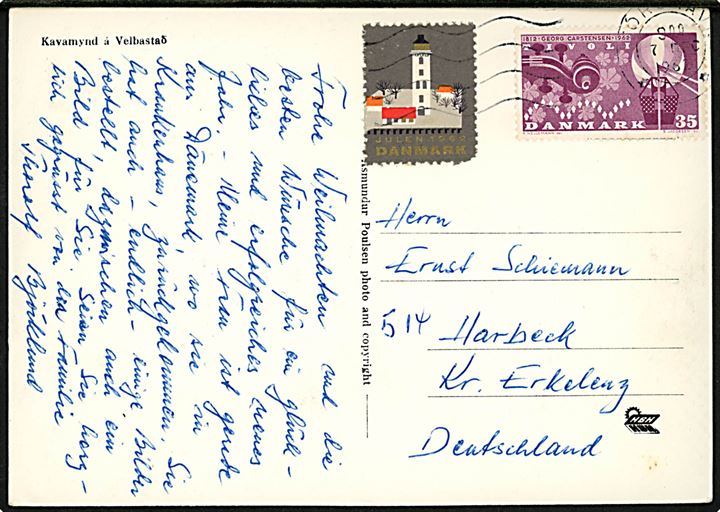 Kavamynd á Velbastað
Frohe Weihnachten und die
besten Wünsche für ein glück-
liches und erfolgreiches neues
Jahr. - Meine Frau ist gerade
aus Dänemark, wo sie in
Krankenhaus, zurückgekommen. Sie
hat auch - endlich - einige Bilder
bestellt, dazwischen auch ein
Bild für Sie. Seien Sie herz-
lich gegrüsst von der Familie
Björklund
JULEN 1962
DANMARK
1812 - GEORG CARSTENSEN - 1962
TIVOLI
DANMARK 35
Ásmundur Poulsen photo and copyright
Herrn
Ernst Schiemann
514 Harbeck
Kr. Erkelenz
Deutschland